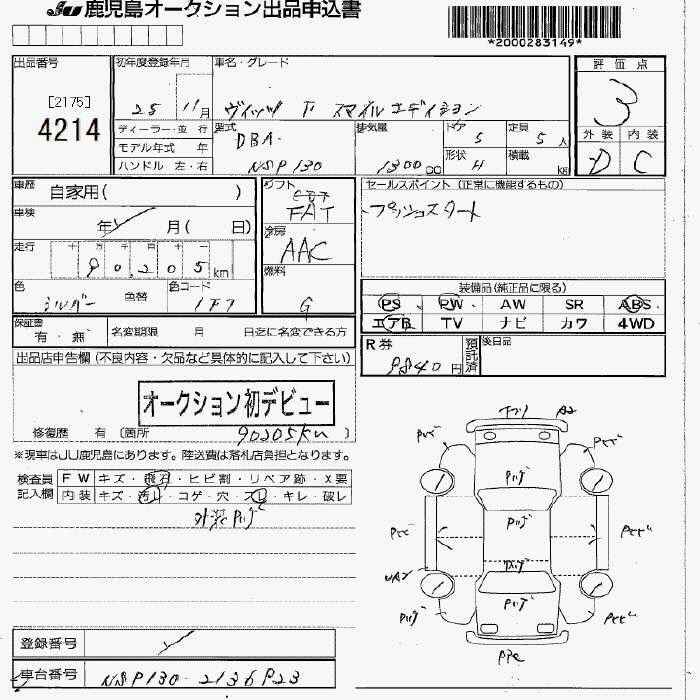 JU 鹿児島オークション出品申込書
*2000283149*
出品番号
[2175]
4214
初年度登録年月
25 11月
車名・グレード
ヴィッツ F スマイルエディション
評価点
3
外装 内装
D C
ディーラー・並 行
モデル年式 年
ハンドル 左・右
型式
DBA-
NSP130
排気量
1300 cc
ドア
5
定員
5人
形状
H
積載
kg
車歴 自家用( )
車検 年 月( 日)
走行 十 万 千 百 十 一
90,205 km
色
シルバー
色替
色コード
1F7
シフト
FAT
冷房
AAC
燃料
G
セールスポイント (正常に機能するもの)
プッシュスタート
装備品(純正品に限る)
PS PW AW SR ABS
エアB TV ナビ カワ 4WD
保証書
有・無
名変期限 月 日迄に名変できる方
R券
9840円
預託済
後日品
出品店申告欄 (不良内容・欠品など具体的に記入して下さい)
オークション初デビュー
修復歴 有 〔箇所 〕
90205km
※現車はJU鹿児島にあります。陸送費は落札店負担となります。
検査員記入欄
FW キズ・飛石・ヒビ割・リペア跡・X要
内装 キズ・汚れ・コゲ・穴・スレ・キレ・破レ
登録番号
車台番号
NSP130-2136923